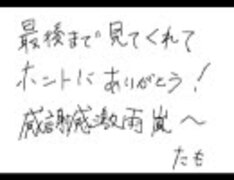 最後まで見てくれて
ホントにありがとう！
感謝感激雨嵐〜
たも